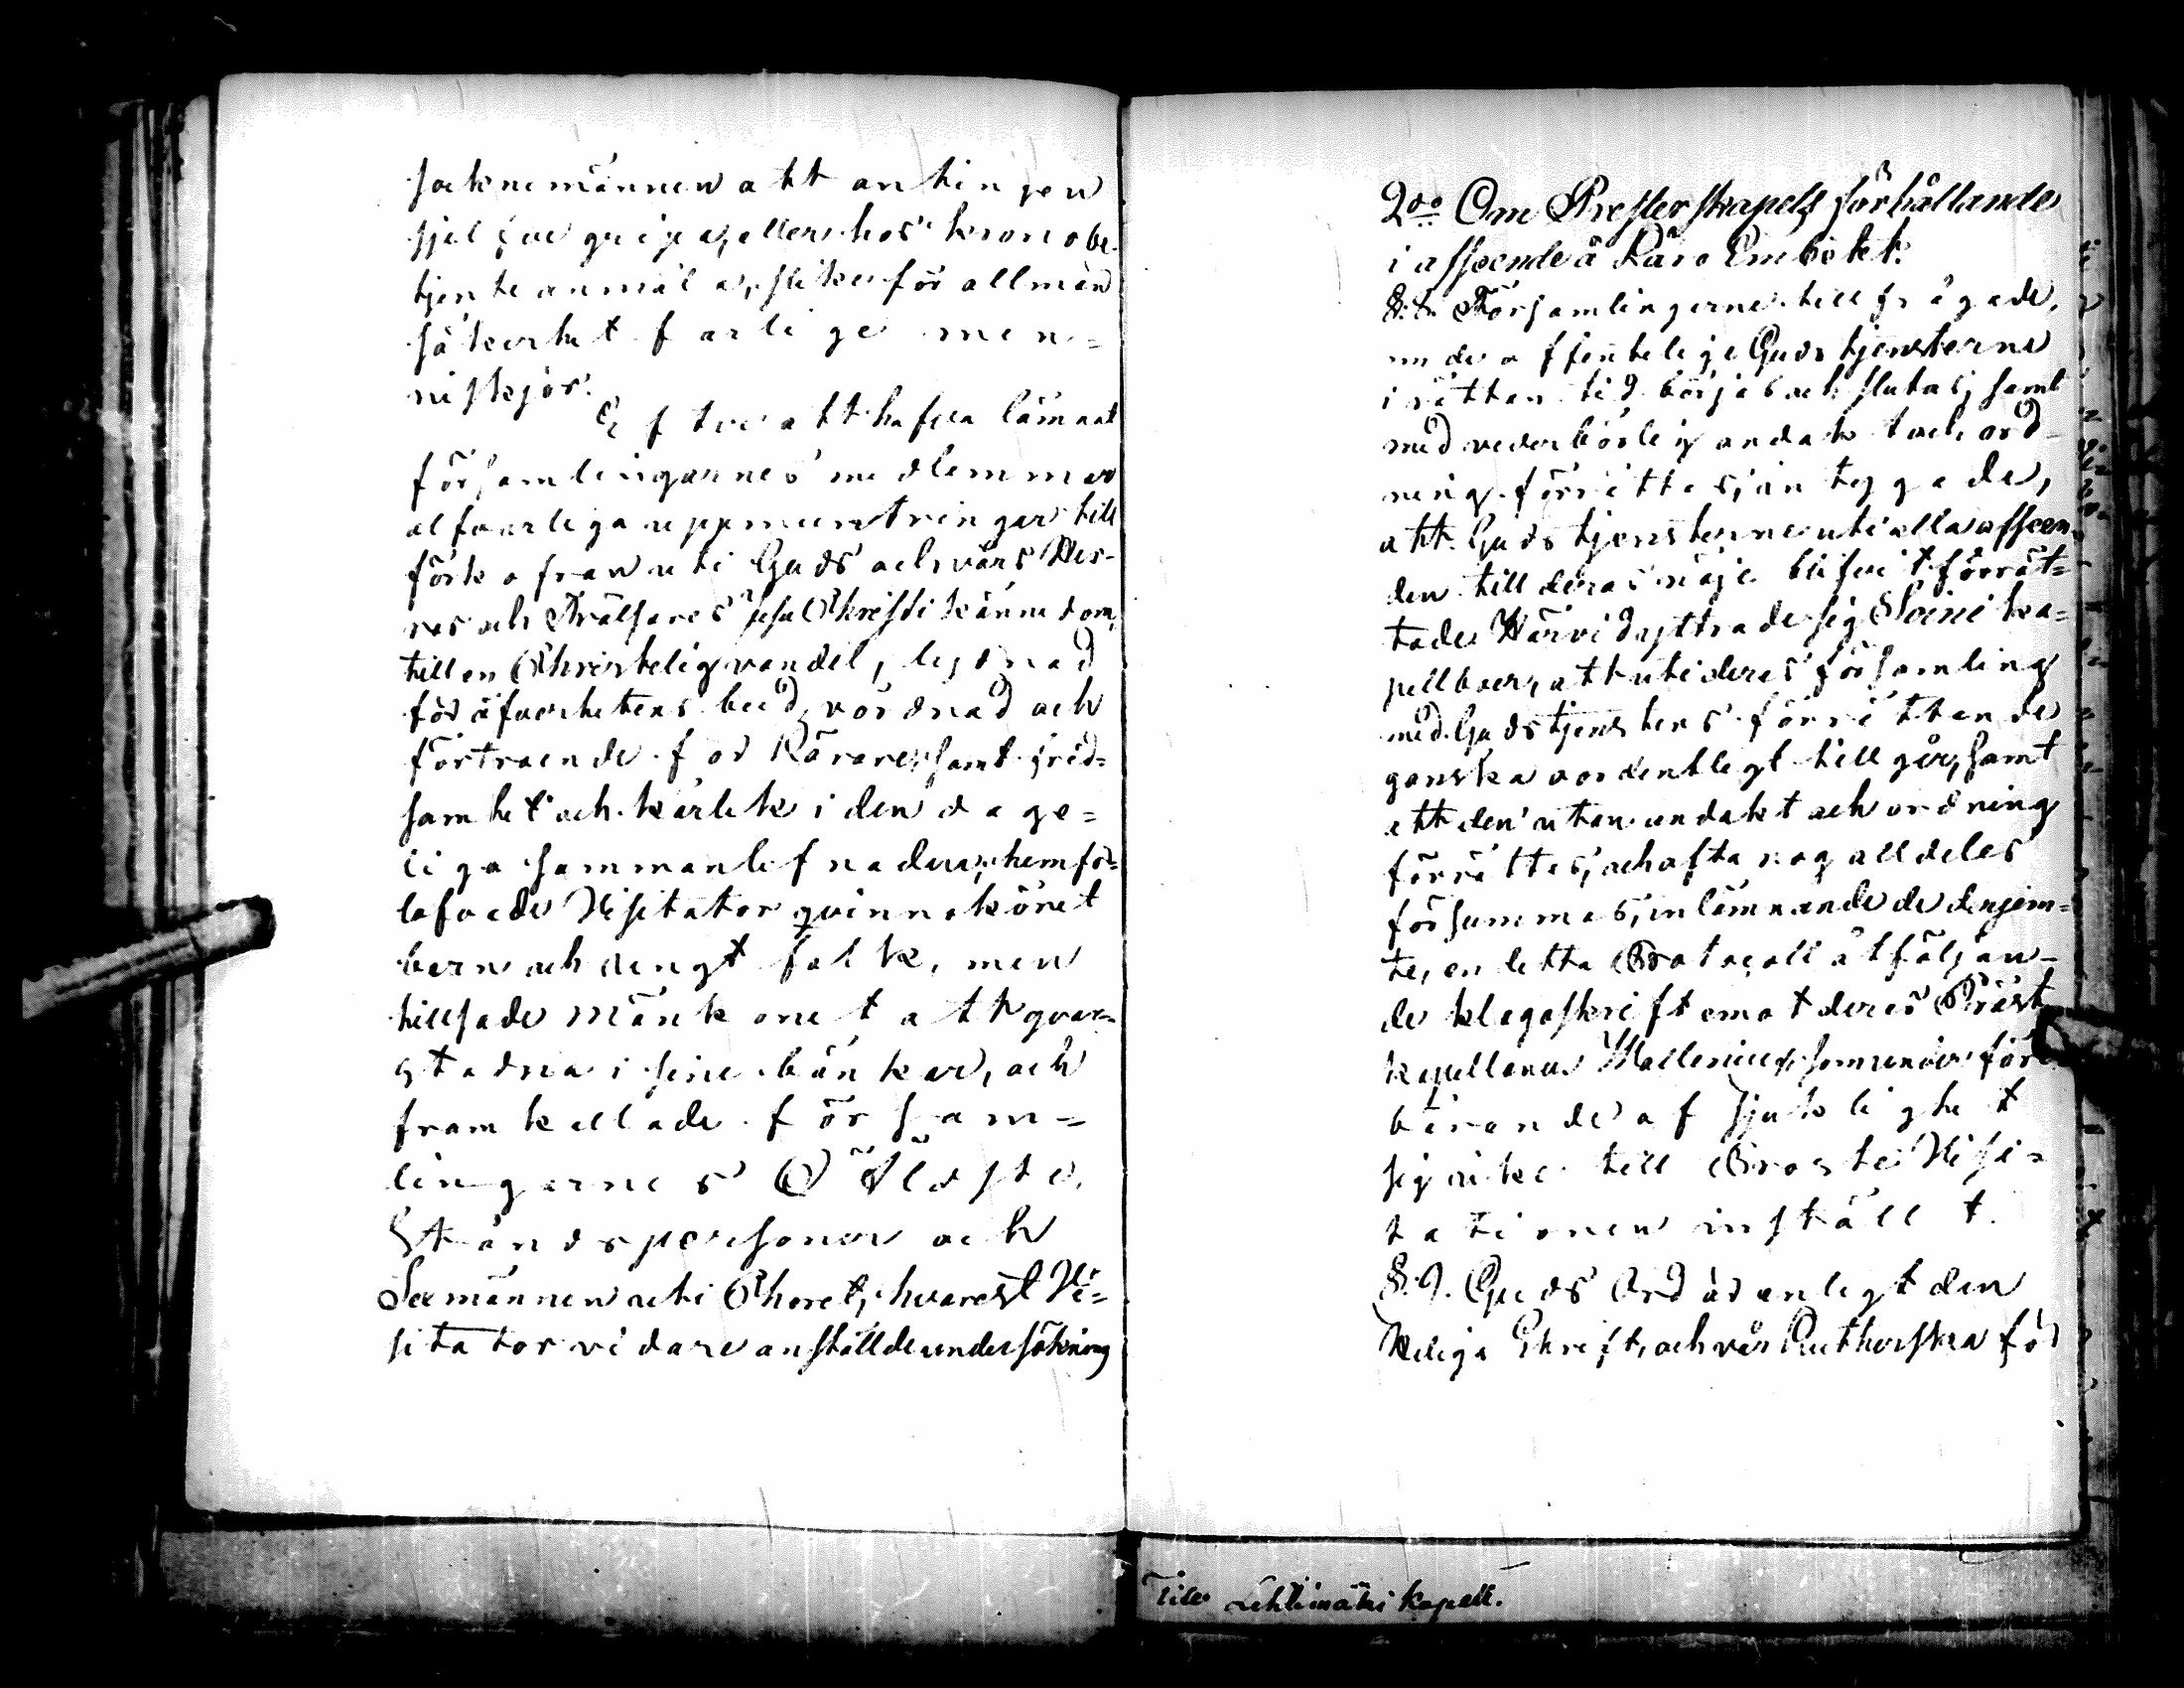 socknemännen att antingen
sjelfve gripa, eller hos kronobe-
tjente anmäla, slike för allmän
säkerhet farlige men=
niskjor.
Efter att hafva lämnat
församlingarnes medlemmar
alfvarliga uppmuntringar till
förkofran uti Guds och vårs Her-
res och Frälsares Jesu Christi kännedom,
till en Christelig vandel, lydnad
för öfverhetens bud, vördnad och
förtroende för Lärare, samt frid=
samhet och kärlek i den dage=
liga sammanlefnaden, hemför=
lofvade Visitator qvinnokönet
barn och ungt folk, men
tillsade mankönet att qvar=
stadna i sine bänkar, och
framkallade försam=
lingarnes Äldste,
Ståndspersoner och
Sexmännen uti Choret, hvarest Vi=
sitator vidare anställde undersökning
2do Om Presterskapets förhållande
i afseende å Läro Embetet.
§. 8. Församlingarne tillfrågade,
om de offentelige Gudstjensterne
i rättan tid börjas och slutas, samt
med vederbörlig andakt och ord-
ning förrättas, intygade,
att Gudstjensterne uti alla afseen-
den till deras nöje blifvit förrät=
tade. Härvid yttrade sig Soini ka=
pellboer, att uti deras församling
med Gudstjenstens förrättande
ganska oordentligt tillgår, samt
att den utan andakt och ordning
förrättes, och ofta nog alldeles
försummas, inlämnande de derjem=
te, en detta Protocoll åtföljan-
de klagoskrift emot deras Präst
kapellanen Mallenius, som under före
bärande af sjuklighet
sig icke till Proste Visi=
tationen inställt.
§. 9. Guds Ord är enligt den
Heliga Skrift, och vår Lutherska för
Till Lehtimäki kapell.